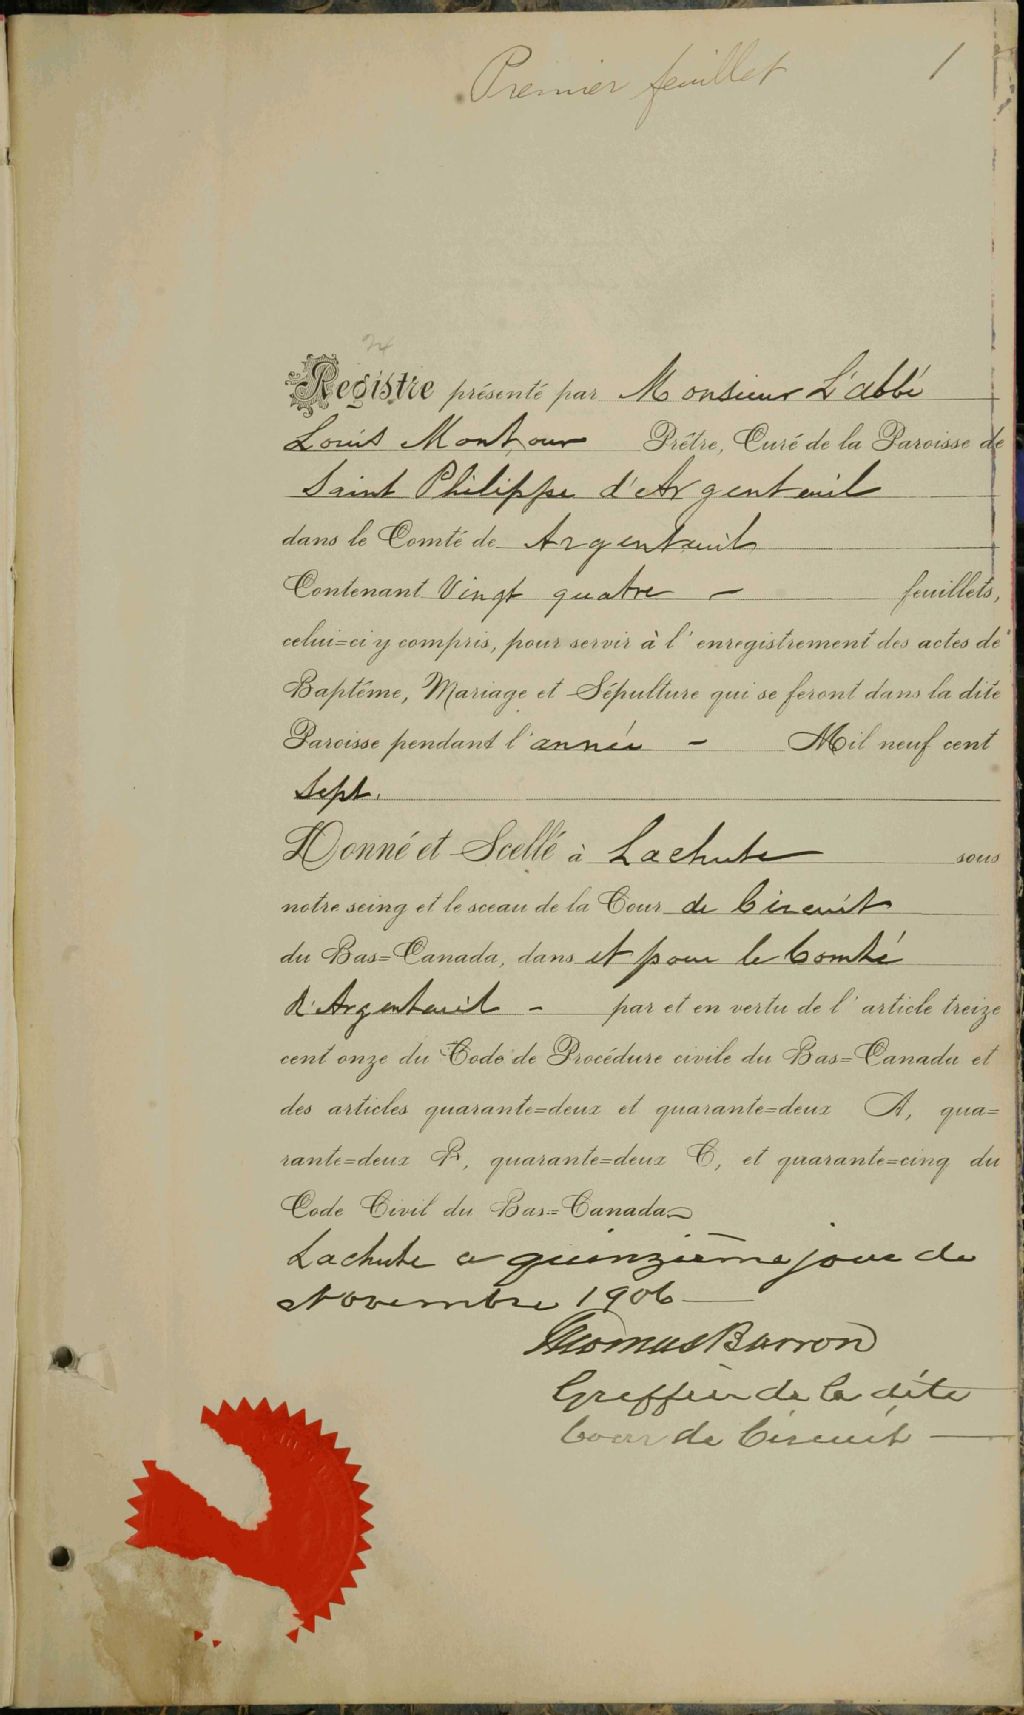 Premier feuillet 1
24
Registre présenté par Monsieur L'abbé
Louis Montour Prêtre, Curé de la Paroisse de
Saint Philippe d'Argenteuil
dans le Comté de Argenteuil
Contenant Vingt quatre — feuillets,
celui=ci y compris, pour servir à l'enregistrement des actes de
Baptême, Mariage et Sépulture qui se feront dans la dite
Paroisse pendant l'année — Mil neuf cent
Sept.
Donné et Scellé à Lachute sous
notre seing et le sceau de la Cour de Circuit
du Bas=Canada, dans et pour le Comté
d'Argenteuil — par et en vertu de l'article treize
cent onze du Code de Procédure civile du Bas=Canada et
des articles quarante=deux et quarante=deux A, qua=
rante=deux B, quarante=deux C, et quarante=cinq du
Code Civil du Bas=Canada
Lachute ce quinzième jour de
Novembre 1906 —
Thomas Barron
Greffier de la dite
Cour de Circuit —